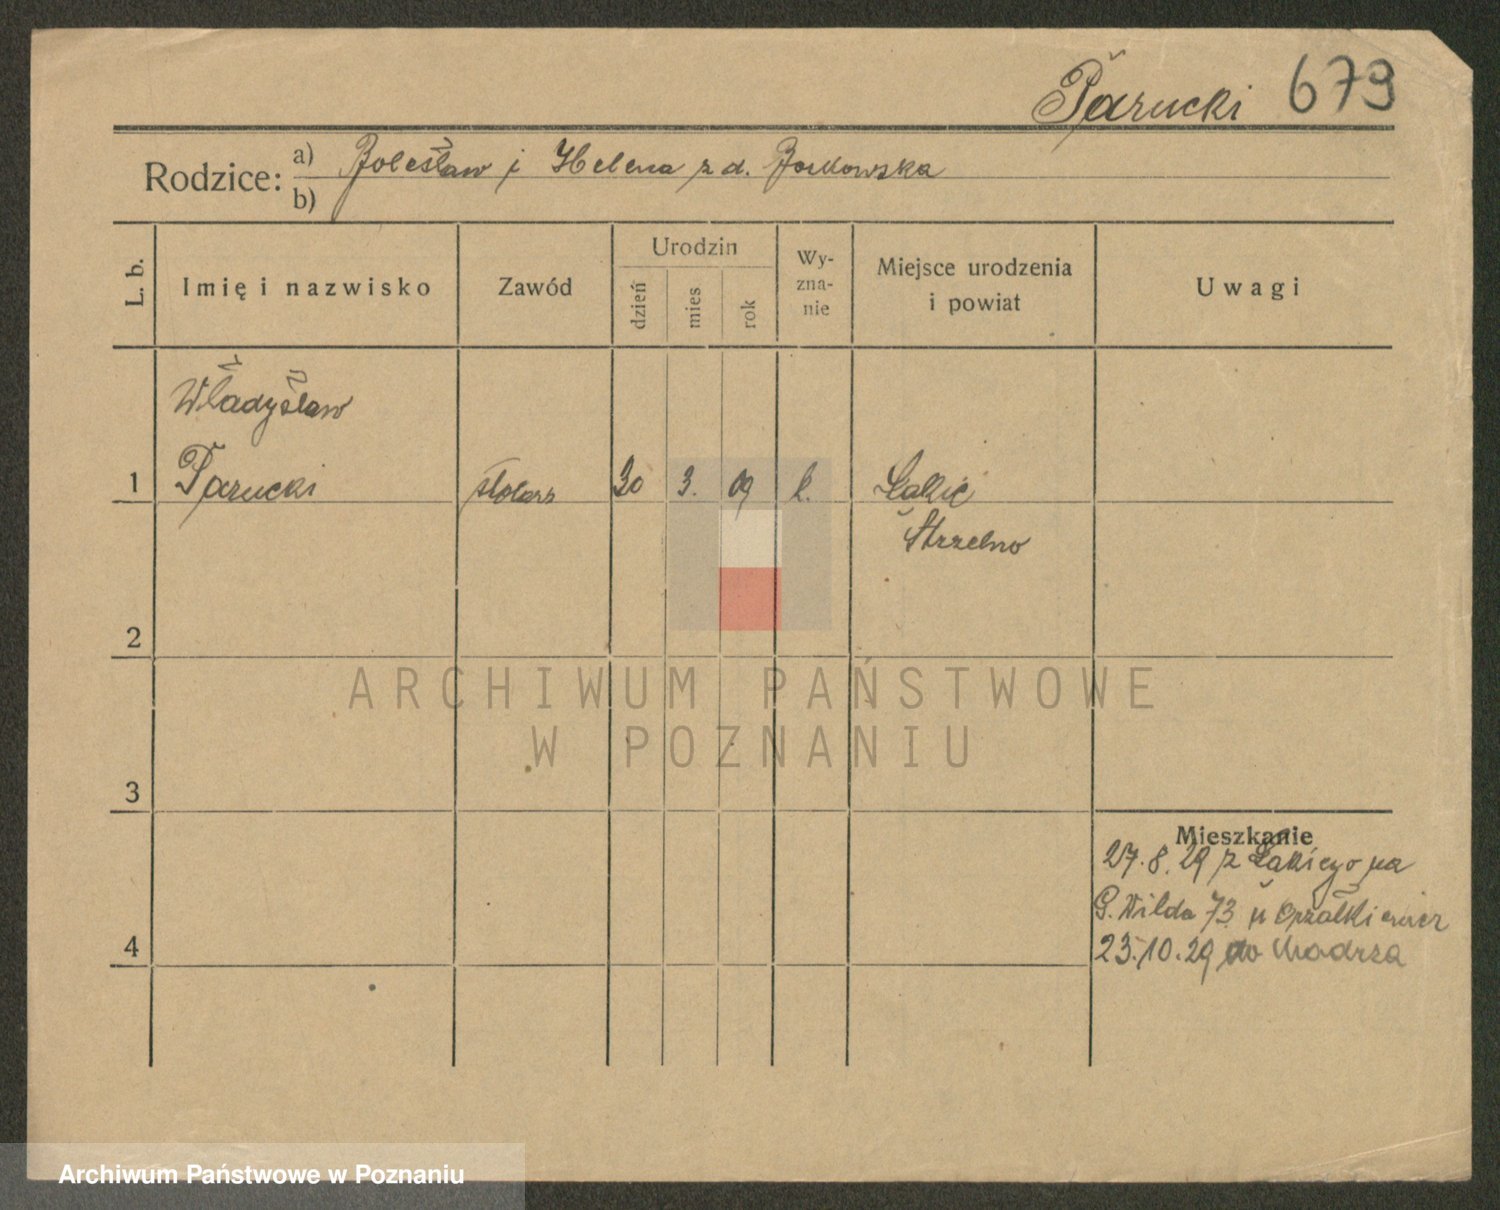 Parucki 679
Rodzice: a) Bolesław i Helena z d. Borkowska
b)
L. b. Imię i nazwisko Zawód Urodzin dzień mies rok Wyznanie Miejsce urodzenia i powiat Uwagi
Władysław
1 Parucki stolarz 30 3. 09 k.
Strzelno
2
3
4
Mieszkanie
27.8.29 z na
G. Wilda 73 u
23.10.29 do
ARCHIWUM PAŃSTWOWE
W POZNANIU
Archiwum Państwowe w Poznaniu